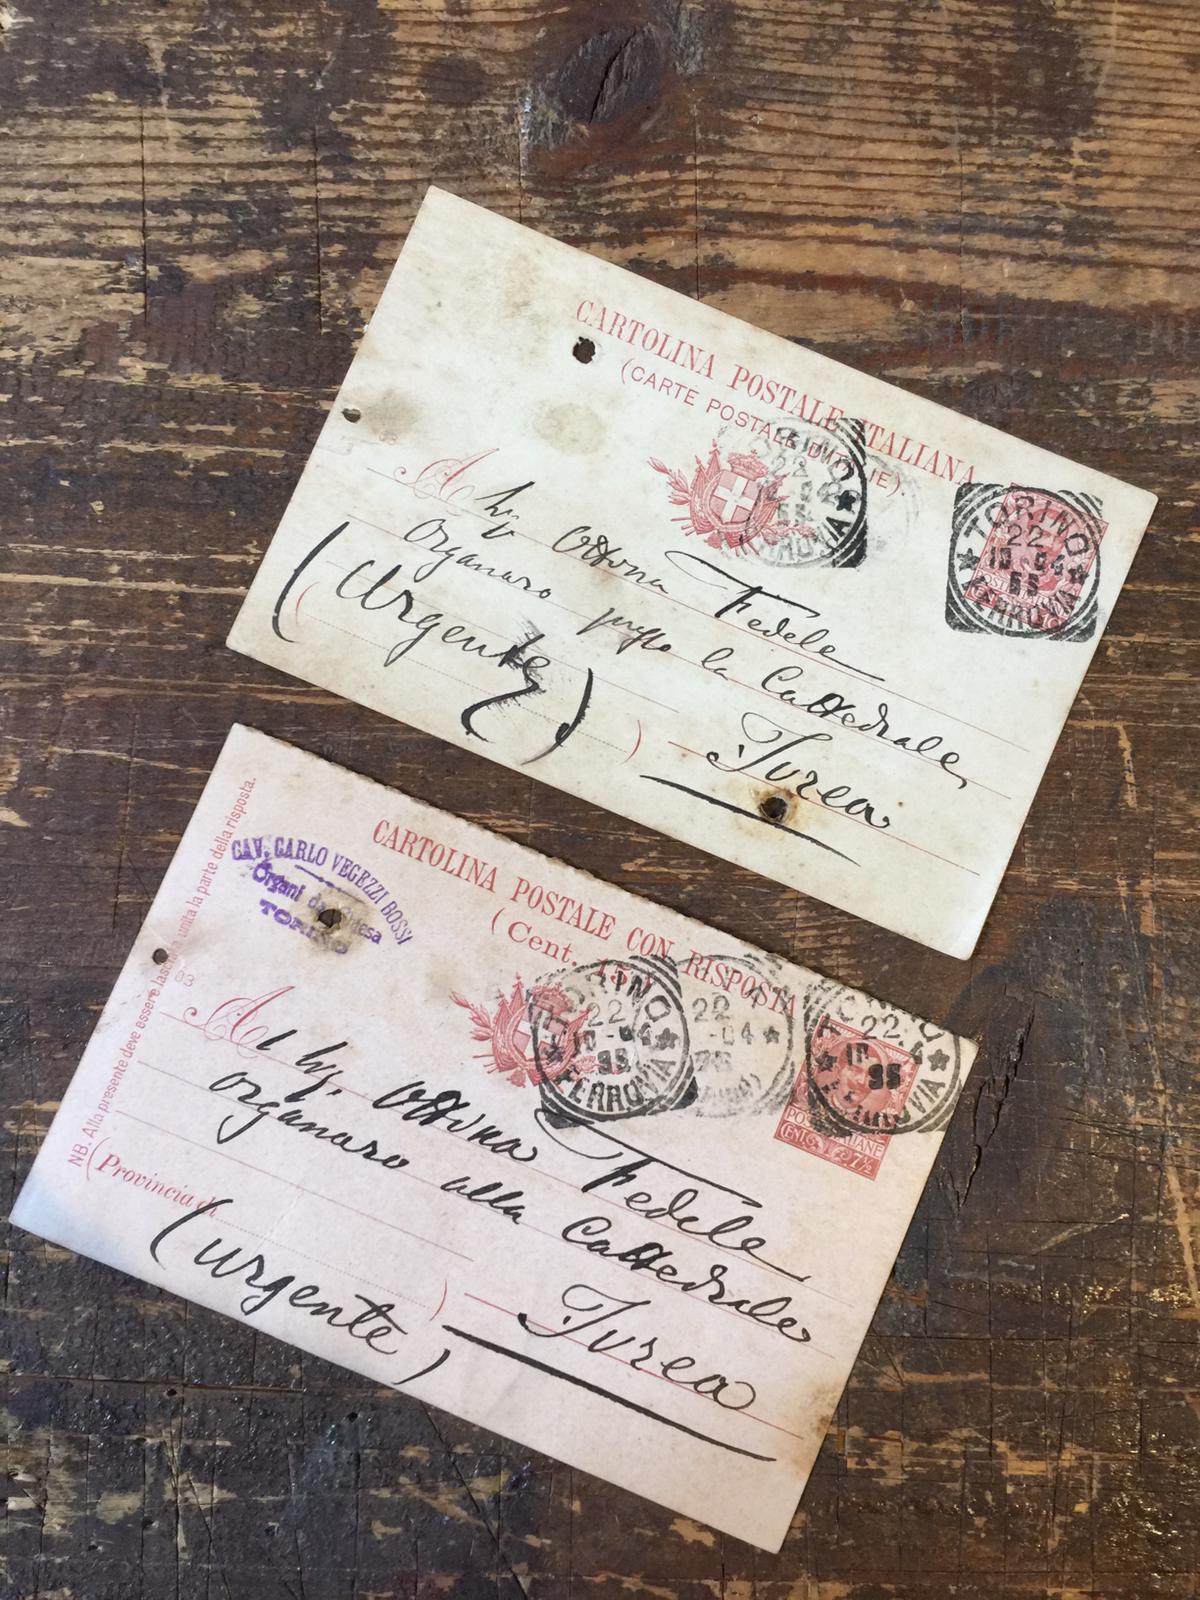 CARTOLINA POSTALE ITALIANA
(CARTE POSTALE D'ITALIE).
TORINO
22
10-04
FERROVIA
TORINO
22
10-04
FERROVIA
A Sig Ottina Fedele
Organaro presso la Cattedrale,
(Urgente)
Ivrea
NB. Alla presente deve essere lasciata unita la parte della risposta.
CAV. CARLO VEGEZZI BOSSI
Organi da Chiesa
TORINO
CARTOLINA POSTALE CON RISPOSTA
(Cent. 15)
03
TORINO
22
10-04
FERROVIA
22
-04
22
FERROVIA
POSTE ITALIANE
CENT. 7½
Al Sig. Ottina Fedele
Organaro alla Cattedrale
(Provincia di
(Urgente)
Ivrea